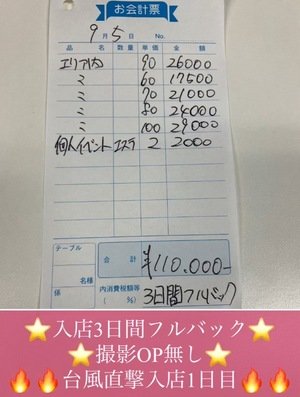 お会計票
9月5日 No.
品名 数量 単価 金額
エリア内 90 26000
〃 60 17500
〃 70 21000
〃 80 24000
〃 100 29000
個人イベント エステ 2 2000
テーブル
名様
係
合計 ¥110.000-
内消費税額等
( %) 3日間フルバック
⭐入店3日間フルバック⭐
⭐撮影OP無し⭐
🔥🔥台風直撃入店1日目🔥🔥